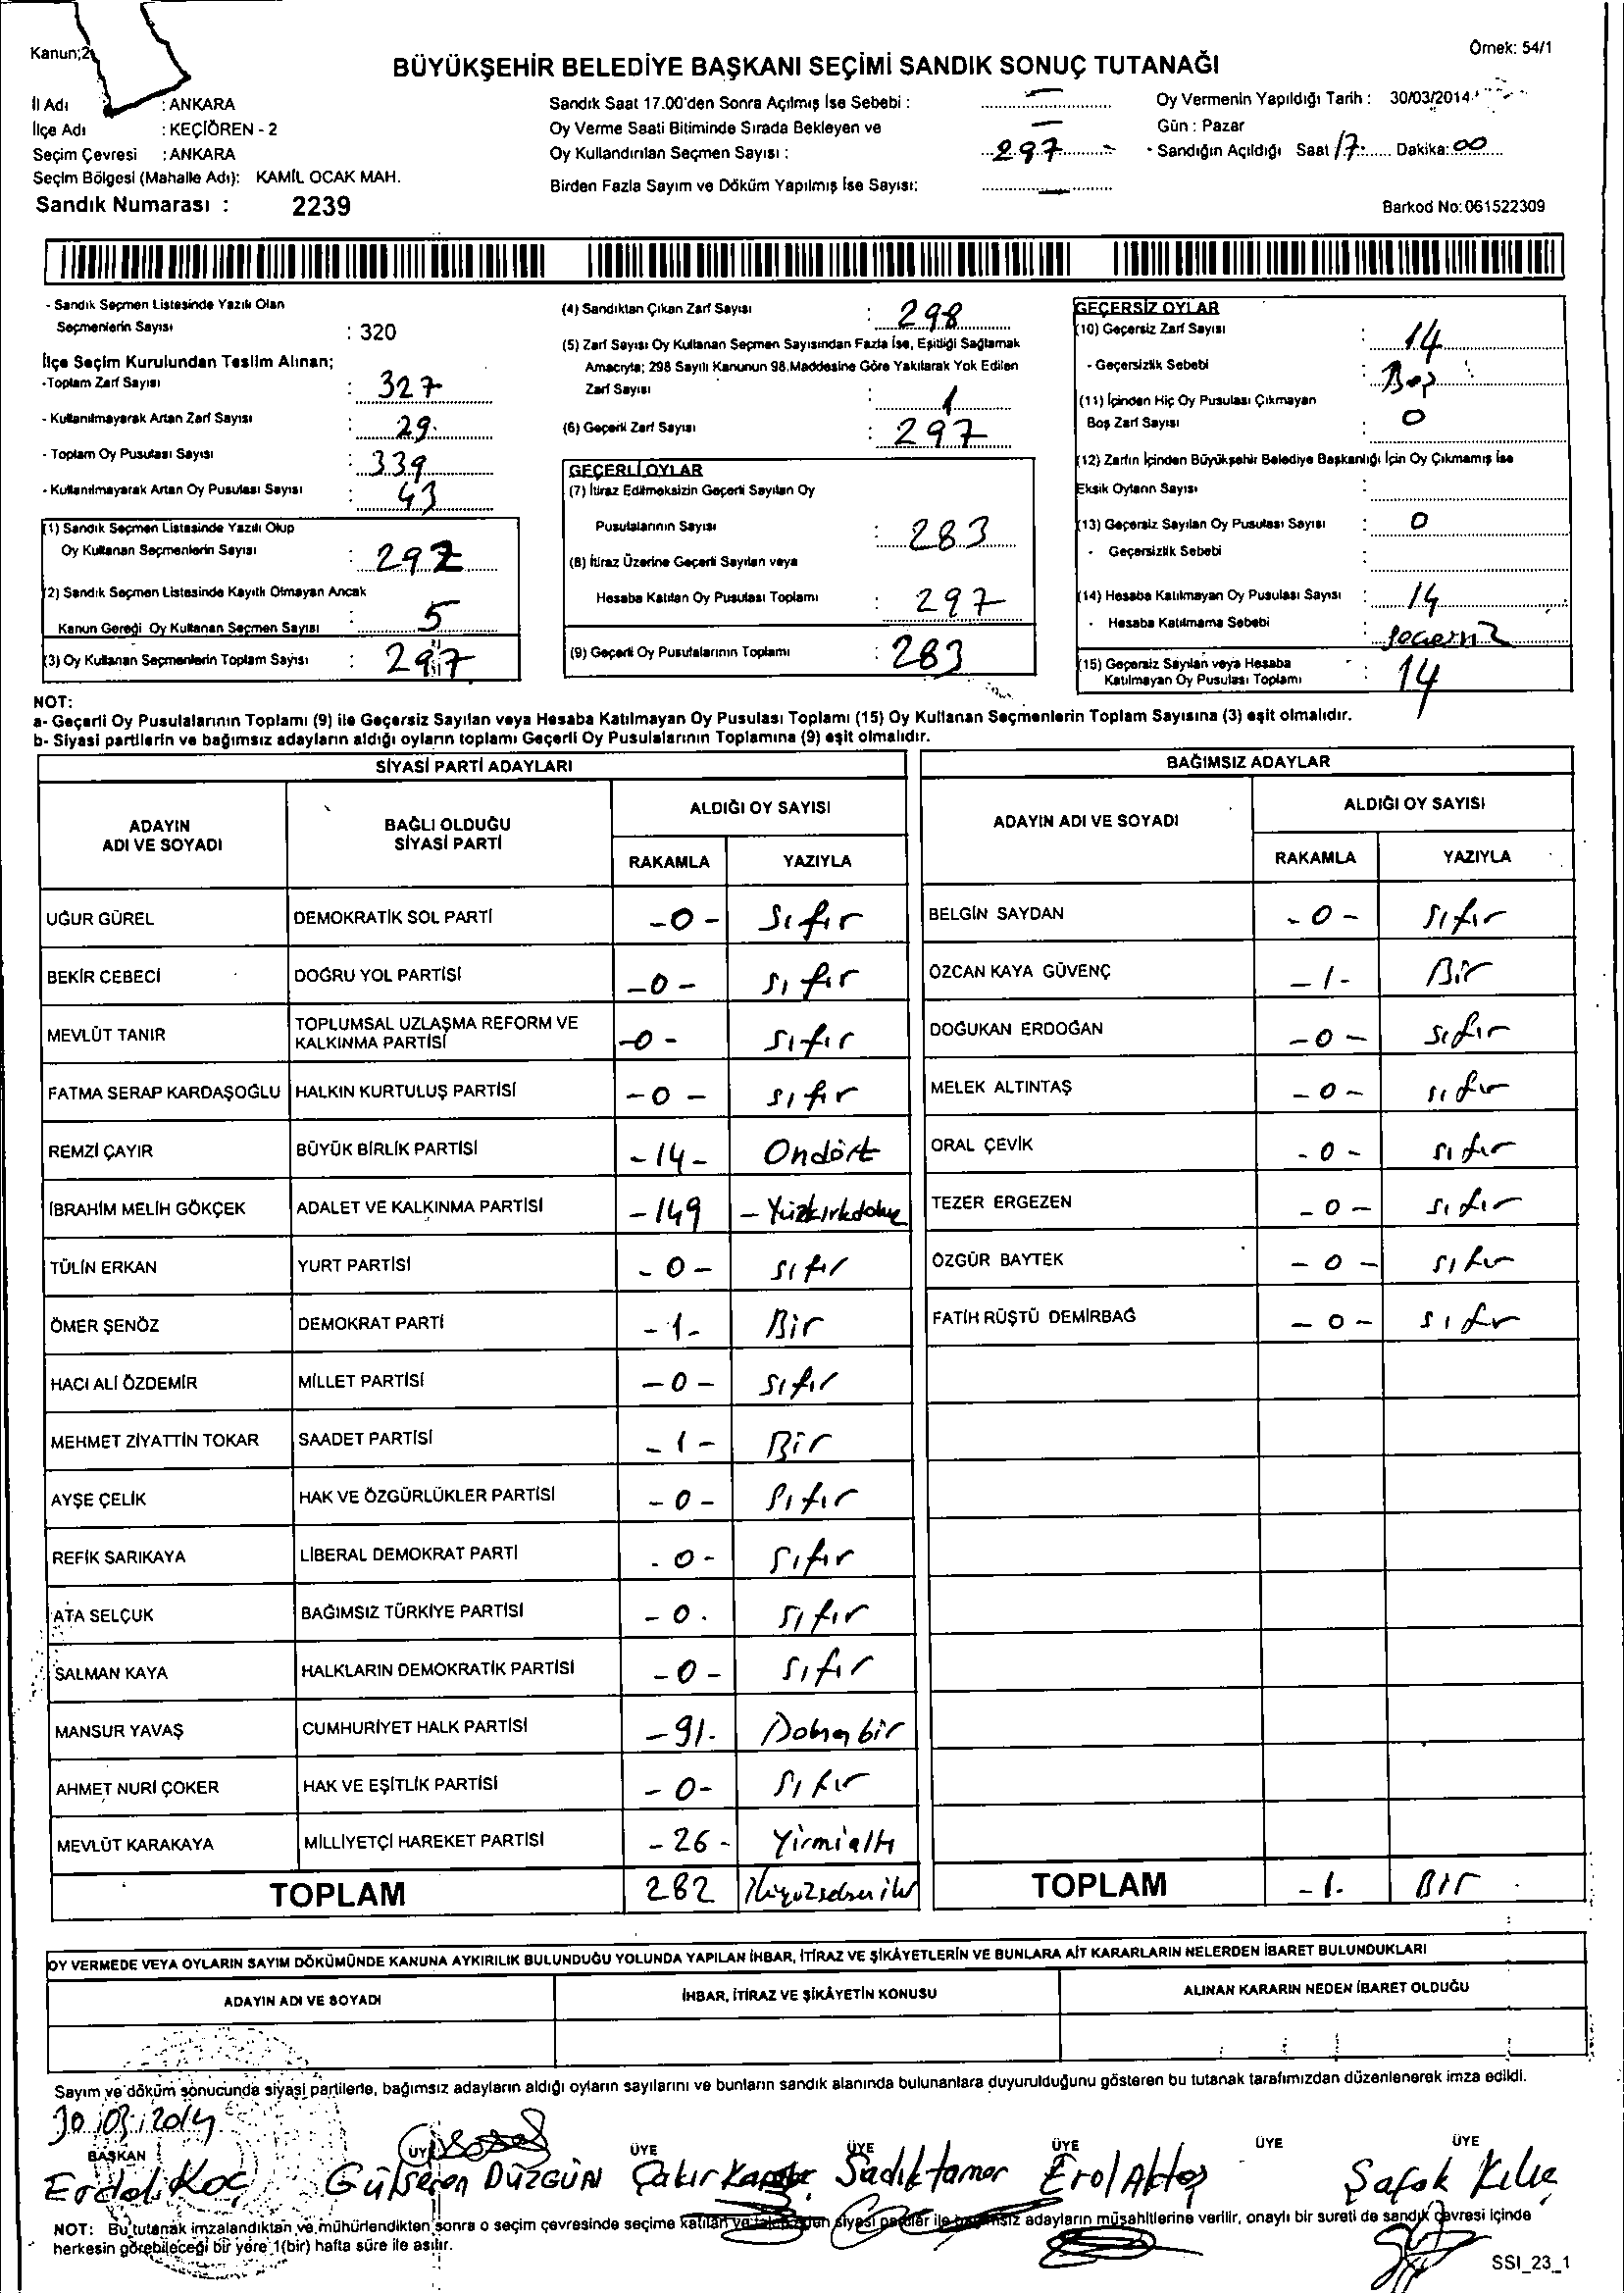 Kanun;2
Örnek: 54/1
BÜYÜKŞEHİR BELEDİYE BAŞKANI SEÇİMİ SANDIK SONUÇ TUTANAĞI
İl Adı : ANKARA
İlçe Adı : KEÇİÖREN - 2
Seçim Çevresi : ANKARA
Seçim Bölgesi (Mahalle Adı): KAMİL OCAK MAH.
Sandık Numarası : 2239
Sandık Saat 17.00'den Sonra Açılmış İse Sebebi : —
Oy Verme Saati Bitiminde Sırada Bekleyen ve —
Oy Kullandırılan Seçmen Sayısı : 297
Birden Fazla Sayım ve Döküm Yapılmış İse Sayısı: —
Oy Vermenin Yapıldığı Tarih : 30/03/2014
Gün : Pazar
Sandığın Açıldığı Saat 17: Dakika: 00
Barkod No: 061522309
- Sandık Seçmen Listesinde Yazılı Olan
Seçmenlerin Sayısı : 320
İlçe Seçim Kurulundan Teslim Alınan;
-Toplam Zarf Sayısı : 327
- Kullanılmayarak Artan Zarf Sayısı : 29
- Toplam Oy Pusulası Sayısı : 339
- Kullanılmayarak Artan Oy Pusulası Sayısı : 43
(1) Sandık Seçmen Listesinde Yazılı Olup
Oy Kullanan Seçmenlerin Sayısı : 292
(2) Sandık Seçmen Listesinde Kayıtlı Olmayan Ancak
Kanun Gereği Oy Kullanan Seçmen Sayısı : 5
(3) Oy Kullanan Seçmenlerin Toplam Sayısı : 297
(4) Sandıktan Çıkan Zarf Sayısı : 298
(5) Zarf Sayısı Oy Kullanan Seçmen Sayısından Fazla İse, Eşitliği Sağlamak
Amacıyla; 298 Sayılı Kanunun 98.Maddesine Göre Yakılarak Yok Edilen
Zarf Sayısı : 1
(6) Geçerli Zarf Sayısı : 297
GEÇERLİ OYLAR
(7) İtiraz Edilmeksizin Geçerli Sayılan Oy
Pusulalarının Sayısı : 283
(8) İtiraz Üzerine Geçerli Sayılan veya
Hesaba Katılan Oy Pusulası Toplamı : 297
(9) Geçerli Oy Pusulalarının Toplamı : 283
GEÇERSİZ OYLAR
(10) Geçersiz Zarf Sayısı : 14
- Geçersizlik Sebebi : Boş
(11) İçinden Hiç Oy Pusulası Çıkmayan
Boş Zarf Sayısı : 0
(12) Zarfın İçinden Büyükşehir Belediye Başkanlığı İçin Oy Çıkmamış İse
Eksik Oyların Sayısı :
(13) Geçersiz Sayılan Oy Pusulası Sayısı : 0
- Geçersizlik Sebebi :
(14) Hesaba Katılmayan Oy Pusulası Sayısı : 14
- Hesaba Katılmama Sebebi :
(15) Geçersiz Sayılan veya Hesaba
Katılmayan Oy Pusulası Toplamı : 14
NOT:
a- Geçerli Oy Pusulalarının Toplamı (9) ile Geçersiz Sayılan veya Hesaba Katılmayan Oy Pusulası Toplamı (15) Oy Kullanan Seçmenlerin Toplam Sayısına (3) eşit olmalıdır.
b- Siyasi partilerin ve bağımsız adayların aldığı oyların toplamı Geçerli Oy Pusulalarının Toplamına (9) eşit olmalıdır.
SİYASİ PARTİ ADAYLARI
ADAYIN ADI VE SOYADI BAĞLI OLDUĞU SİYASİ PARTİ ALDIĞI OY SAYISI
RAKAMLA YAZIYLA
UĞUR GÜREL DEMOKRATİK SOL PARTİ -0- Sıfır
BEKİR CEBECİ DOĞRU YOL PARTİSİ -0- Sıfır
MEVLÜT TANIR TOPLUMSAL UZLAŞMA REFORM VE KALKINMA PARTİSİ -0- Sıfır
FATMA SERAP KARDAŞOĞLU HALKIN KURTULUŞ PARTİSİ -0- Sıfır
REMZİ ÇAYIR BÜYÜK BİRLİK PARTİSİ -14- Ondört
İBRAHİM MELİH GÖKÇEK ADALET VE KALKINMA PARTİSİ -149 -
TÜLİN ERKAN YURT PARTİSİ -0- Sıfır
ÖMER ŞENÖZ DEMOKRAT PARTİ -1- Bir
HACI ALİ ÖZDEMİR MİLLET PARTİSİ -0- Sıfır
MEHMET ZİYATTİN TOKAR SAADET PARTİSİ -1- Bir
AYŞE ÇELİK HAK VE ÖZGÜRLÜKLER PARTİSİ -0- Sıfır
REFİK SARIKAYA LİBERAL DEMOKRAT PARTİ -0- Sıfır
ATA SELÇUK BAĞIMSIZ TÜRKİYE PARTİSİ -0. Sıfır
SALMAN KAYA HALKLARIN DEMOKRATİK PARTİSİ -0- Sıfır
MANSUR YAVAŞ CUMHURİYET HALK PARTİSİ -91-
AHMET NURİ ÇOKER HAK VE EŞİTLİK PARTİSİ -0- Sıfır
MEVLÜT KARAKAYA MİLLİYETÇİ HAREKET PARTİSİ -26- Yirmialtı
TOPLAM 282
BAĞIMSIZ ADAYLAR
ADAYIN ADI VE SOYADI ALDIĞI OY SAYISI
RAKAMLA YAZIYLA
BELGİN SAYDAN -0- Sıfır
ÖZCAN KAYA GÜVENÇ -1- Bir
DOĞUKAN ERDOĞAN -0- Sıfır
MELEK ALTINTAŞ -0- Sıfır
ORAL ÇEVİK -0- Sıfır
TEZER ERGEZEN -0- Sıfır
ÖZGÜR BAYTEK -0- Sıfır
FATİH RÜŞTÜ DEMİRBAĞ -0- Sıfır
TOPLAM -1- BİR
OY VERMEDE VEYA OYLARIN SAYIM DÖKÜMÜNDE KANUNA AYKIRILIK BULUNDUĞU YOLUNDA YAPILAN İHBAR, İTİRAZ VE ŞİKÂYETLERİN VE BUNLARA AİT KARARLARIN NELERDEN İBARET BULUNDUKLARI
ADAYIN ADI VE SOYADI İHBAR, İTİRAZ VE ŞİKÂYETİN KONUSU ALINAN KARARIN NEDEN İBARET OLDUĞU
Sayım ve döküm sonucunda siyasi partilerle, bağımsız adayların aldığı oyların sayılarını ve bunların sandık alanında bulunanlara duyurulduğunu gösteren bu tutanak tarafımızdan düzenlenerek imza edildi.
30.03.2014
BAŞKAN ÜYE ÜYE ÜYE ÜYE ÜYE ÜYE
Erdal Koç Gülseren DÜZGÜN Çakır Sadık tamer Erol Aktaş Şafak Kılıç
NOT: Bu tutanak imzalandıktan ve mühürlendikten sonra o seçim çevresinde seçime katılan ve siyasi partiler ile bağımsız adayların müşahitlerine verilir, onaylı bir sureti de sandık çevresi içinde
herkesin görebileceği bir yere 1(bir) hafta süre ile asılır.
SSI_23_1